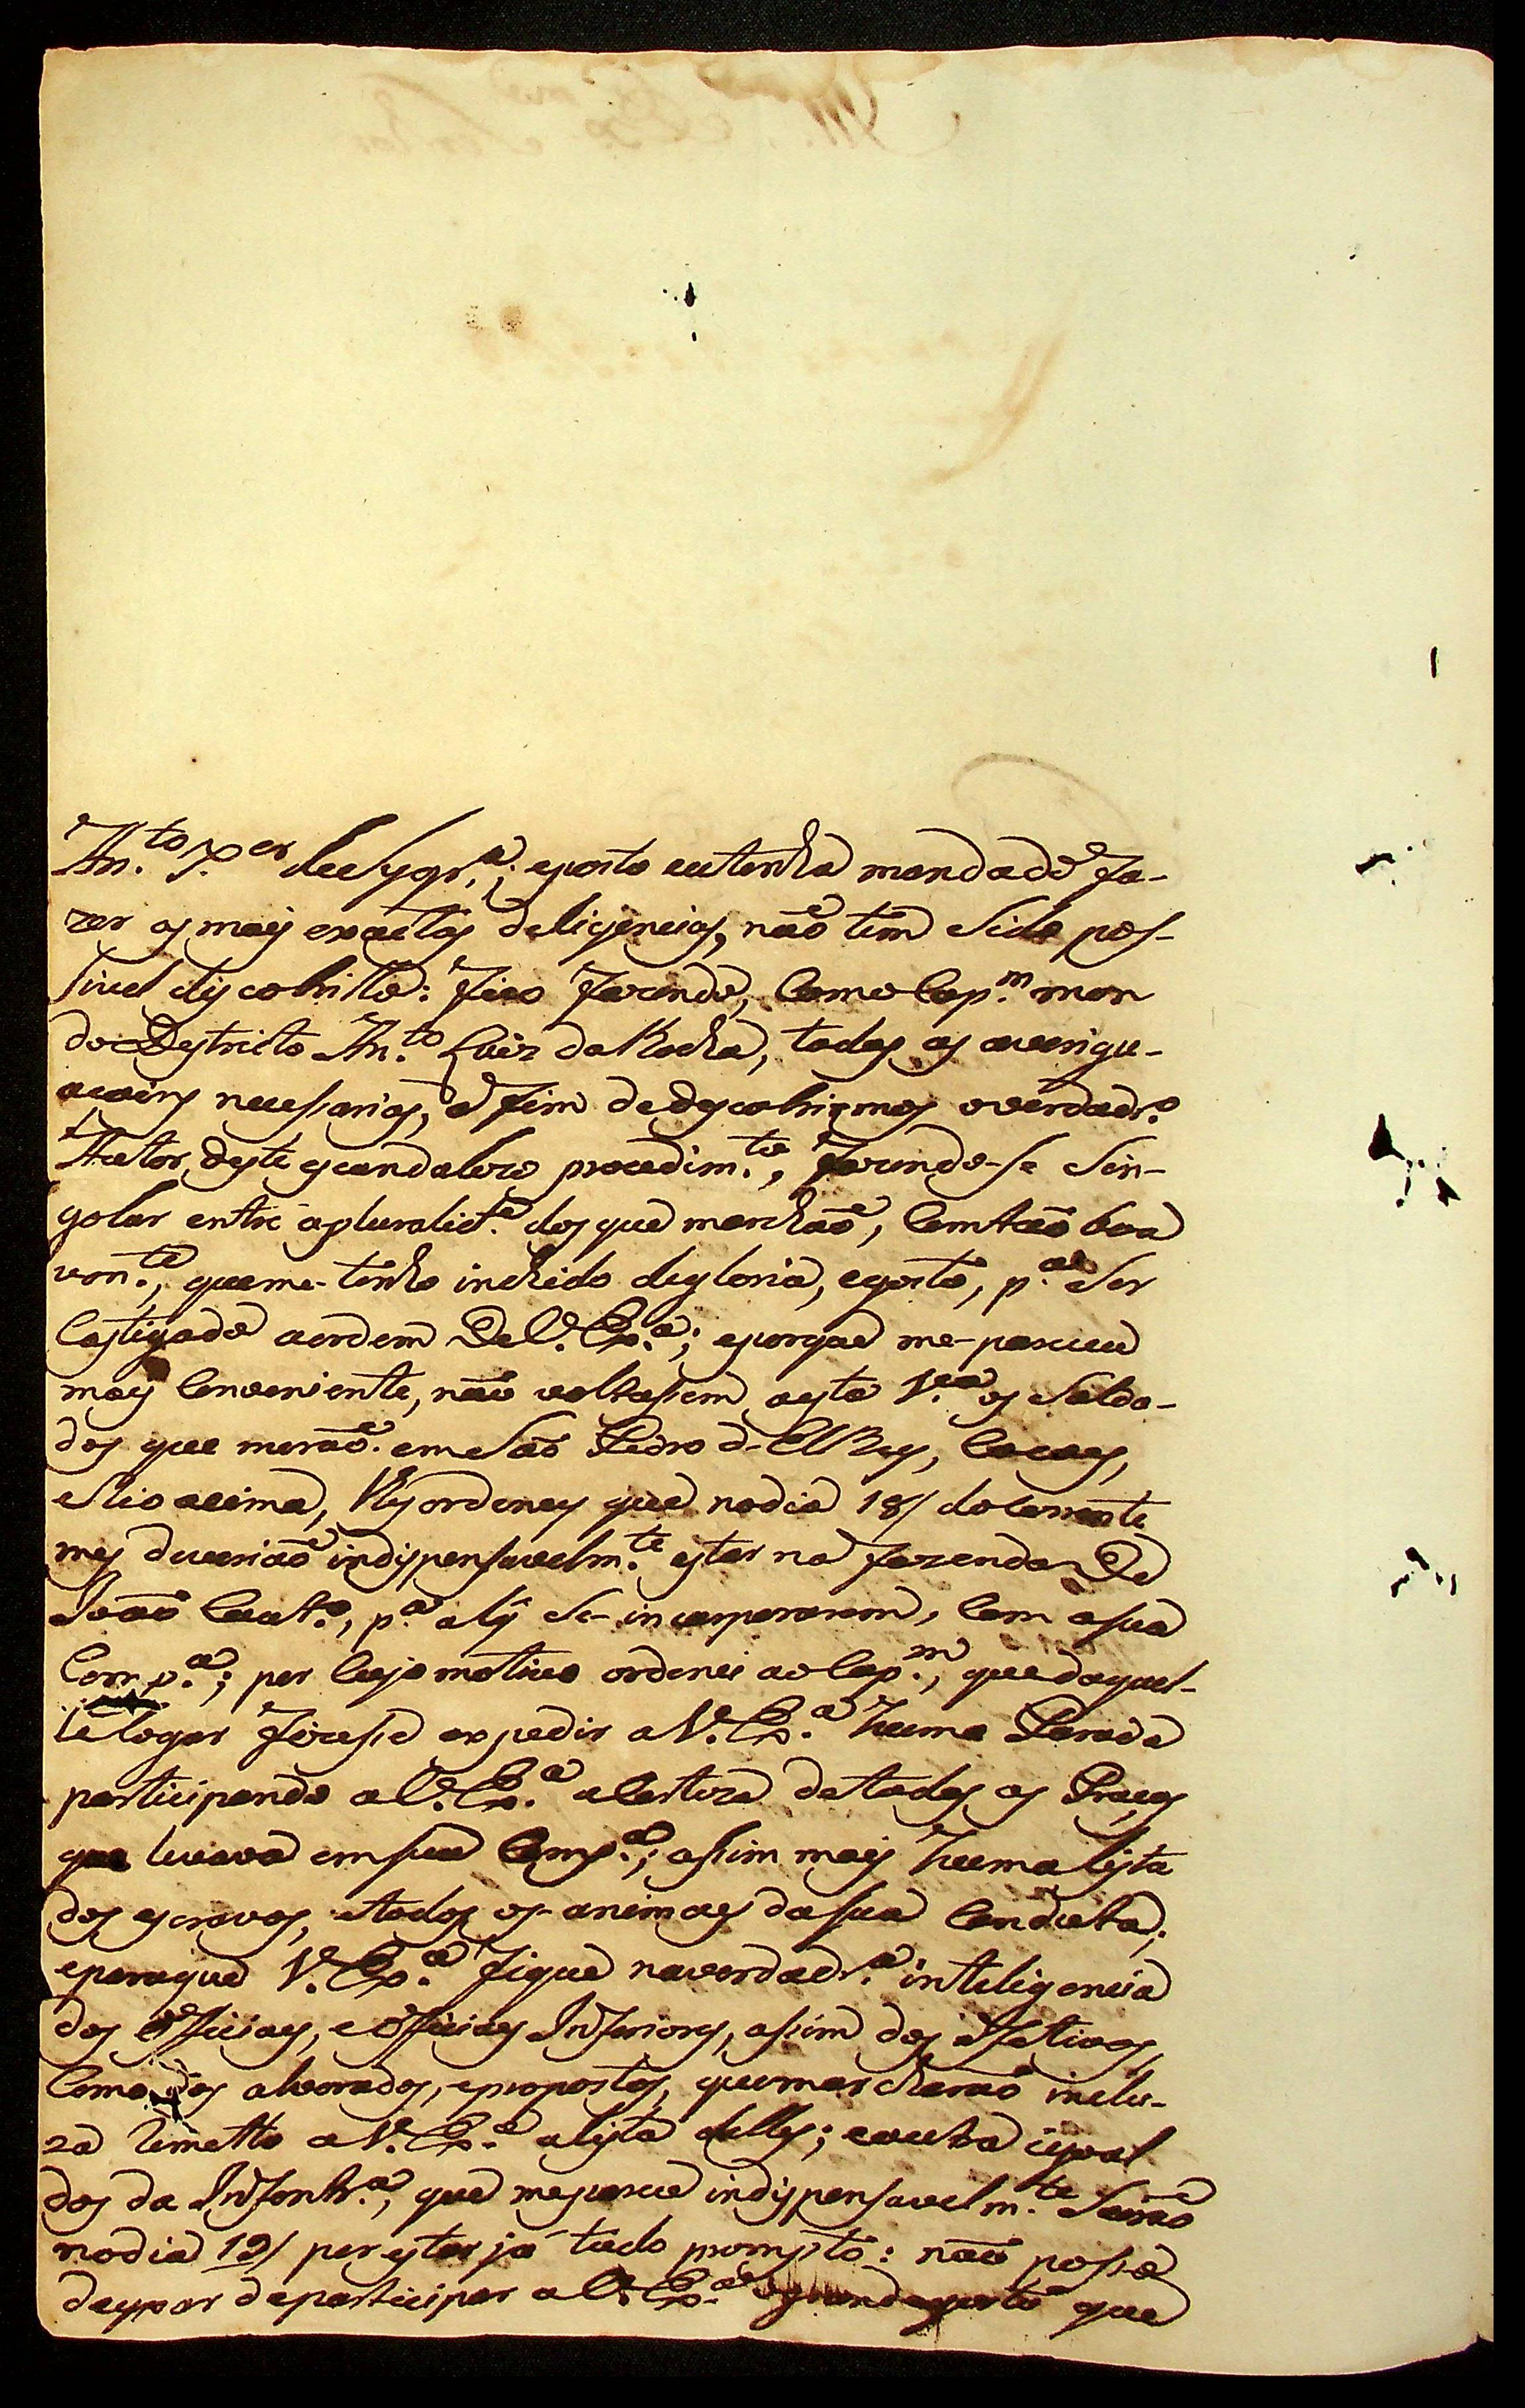 An.to P.er de Sygr.a; eposto eu tenha mandado fa-
zer as mais exactas deligencias, não tem Sido pos-
sivel discobrillo: Fico fazendo, Com o Cap.m mor
do Destricto An.to Luiz da Rocha, todas as averigu-
acoins necesarias, a fim de descobrirmos overdadr.o
Autor deste escandalozo procedim.to, fazendo-se Sin-
golar entre apluralid.e dos que marchaõ, Com taõ boa
von.te, que me-tenho inchido degloria, egosto, p.a Ser
Castigado a ordem De V. Ex.a; eporque me-pareceu
mais Conveniente, não voltasem a esta V.a os Solda-
dos que moraõ em Saõ Pedro d-ElRey, Cocaes,
eRio acima, lhes ordeney que no dia 18/ do Corrente
mes deveriaõ indispensavelm.te estar na fazenda De
Joaõ Coat.o, p.a aly Se-incorporarem, Com a sua
Comp.a; por Cujo motivo ordenei ao Cap.m, que daquel-
le logar fizese expedir a V. Ex.a huma Parada
participando a V. Ex.a a Certeza de todas as Praças
que levava em sua Comp.a; asim mais huma lista
dos escravos, e todos os animaes da sua Conducta;
epara que V. Ex.a fique na verdadr.a inteligencia
dos Officiaes, e Officiaes Inferiores, asim dos Efetivos,
Como dos alvorados, epropostos, que marcharaõ inclu-
za Remetto a V. Ex.a a lista delles; e outra igoal
dos da Infantr.a, que me parece indispensavelm.te Sairaõ
no dia 19/ por estar já tudo prompto: não poso
deixar de participar a V. Ex.a o grande gosto que